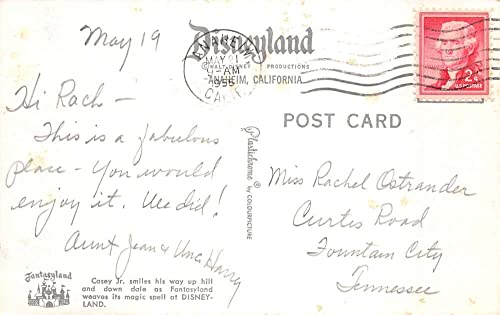 May 19
Disneyland
WALT DISNEY PRODUCTIONS
ANAHEIM, CALIFORNIA
ANAHEIM
MAY 21
9-AM
CALIF.
2¢
POST CARD
Hi Rach -
This is a fabulous
place - You would
enjoy it. We did!
Aunt Jean & Unc. Harry
Plastichrome® by COLOURPICTURE
Miss Rachel Ostrander
Curtis Road
Fountain City
Tennessee
Fantasyland
Casey Jr. smiles his way up hill
and down dale as Fantasyland
weaves its magic spell at DISNEY-
LAND.